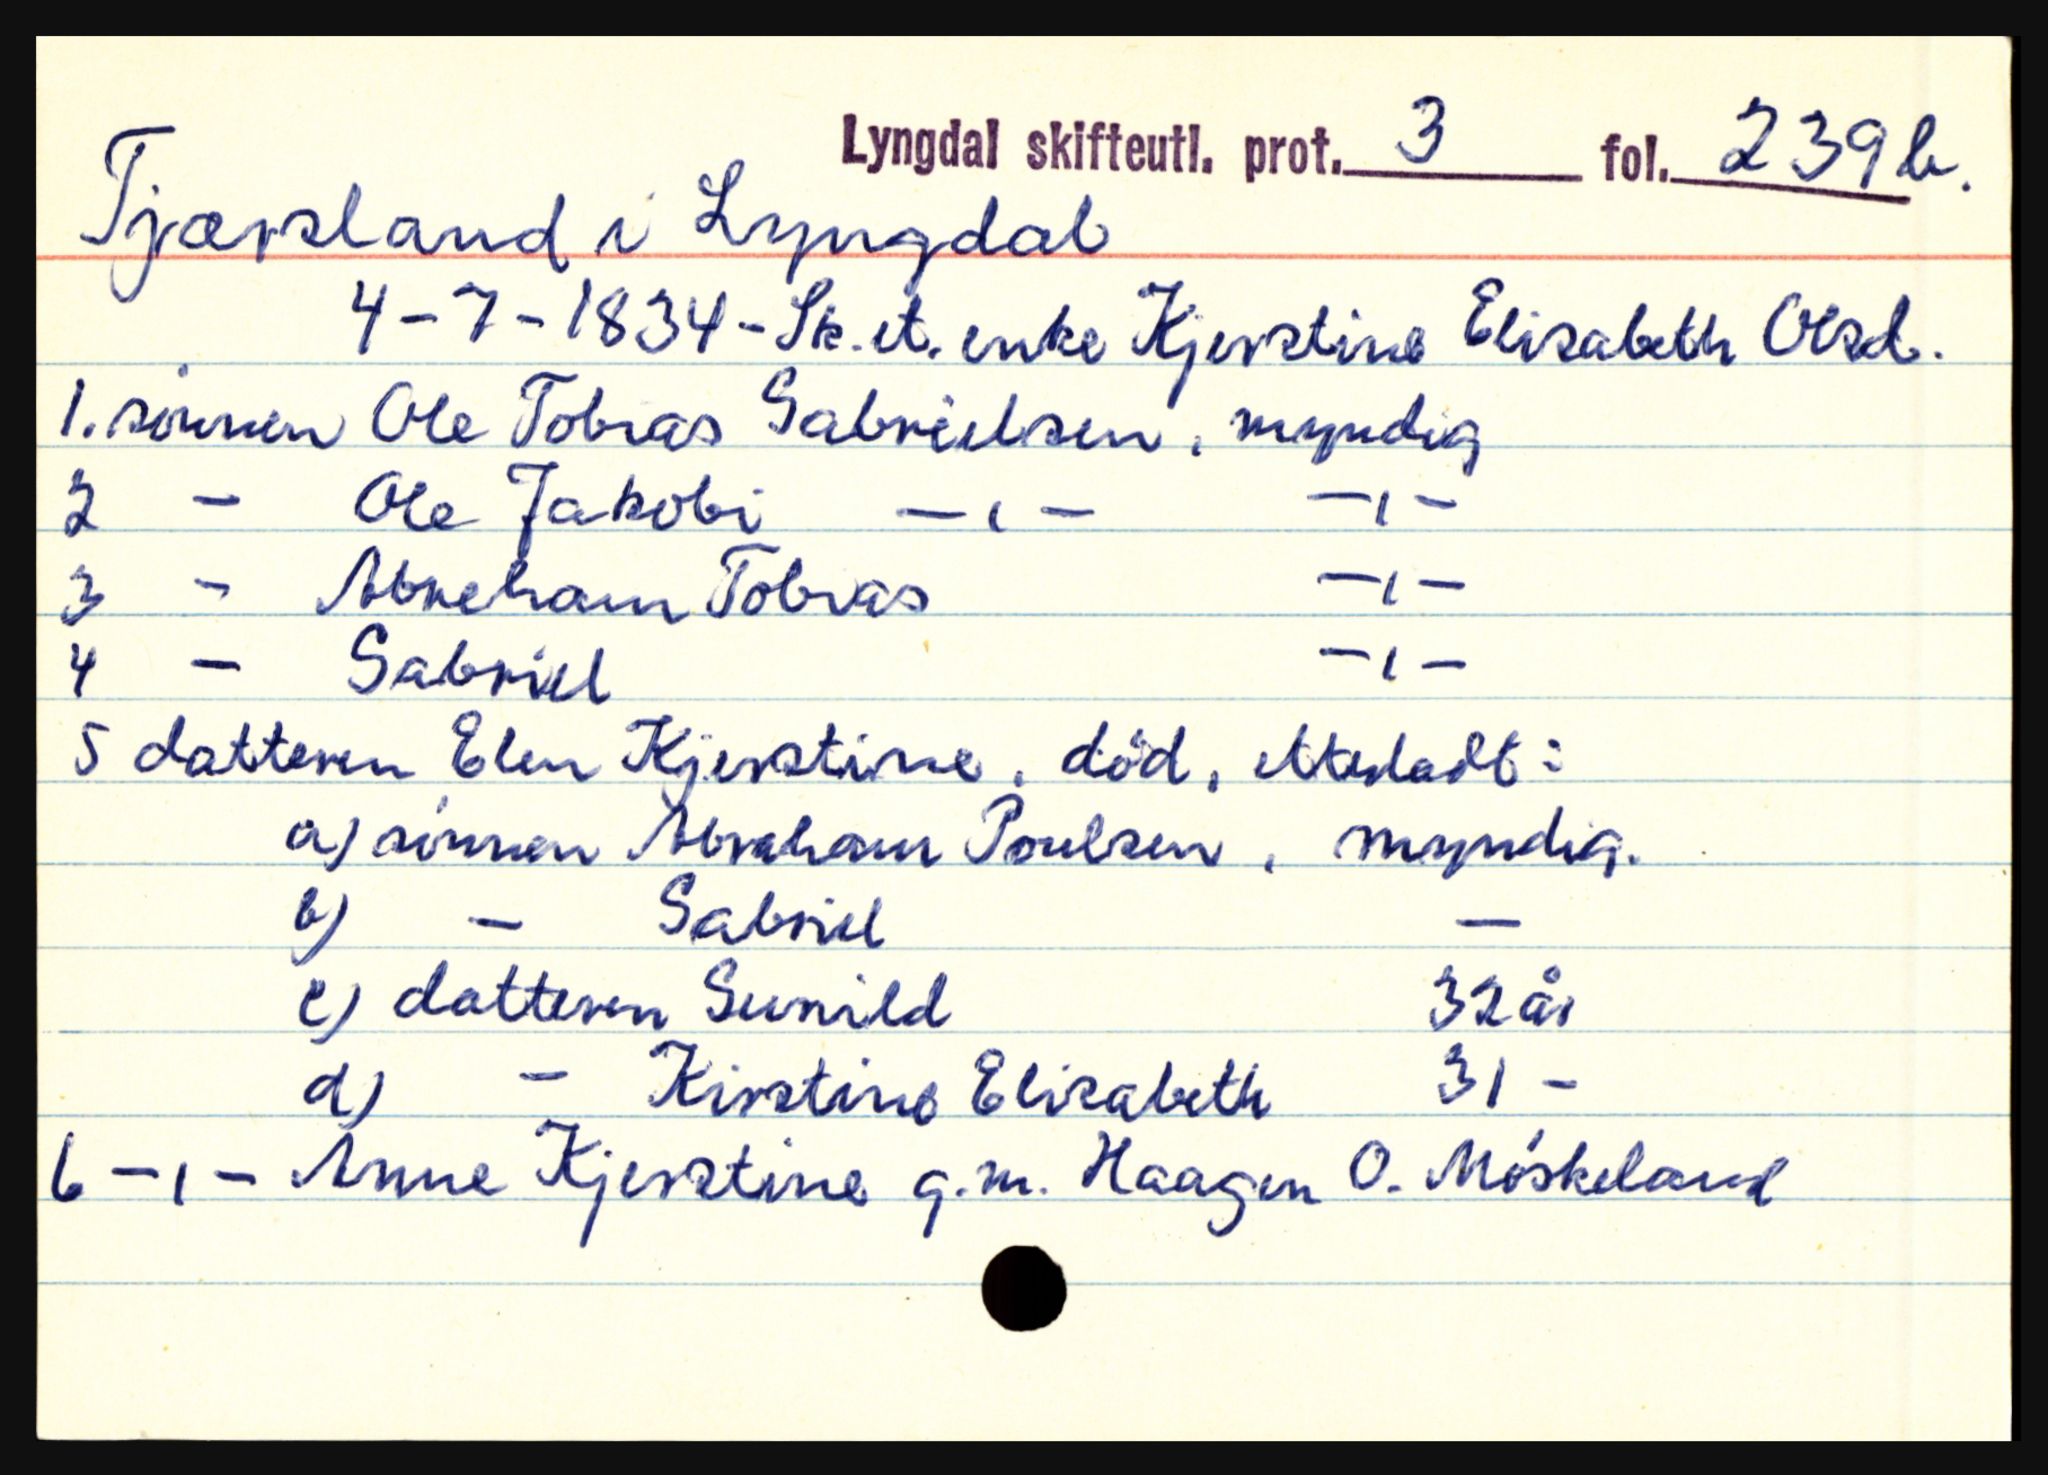 Lyngdal skifteutl. prot. 3 fol. 239b.
Tjærsland i Lyngdal
4-7-1834 - Sk. et. enke Kjerstine Elisabeth Olsd.
1. sønnen Ole Tobias Gabrielsen, myndig
2 - Ole Jakobi -„- -„-
3 - Abreham Tobias -„-
4 - Gabriel -„-
5 datteren Elen Kjerstine, død, etterladt:
a) sønnen Abraham Poulsen, myndig.
b) - Gabriel -
c) datteren Gunild 32 år
d) - Kirstine Elisabeth 31 -
6 -„- Anne Kjerstine g.m. Haagen O. Møskeland